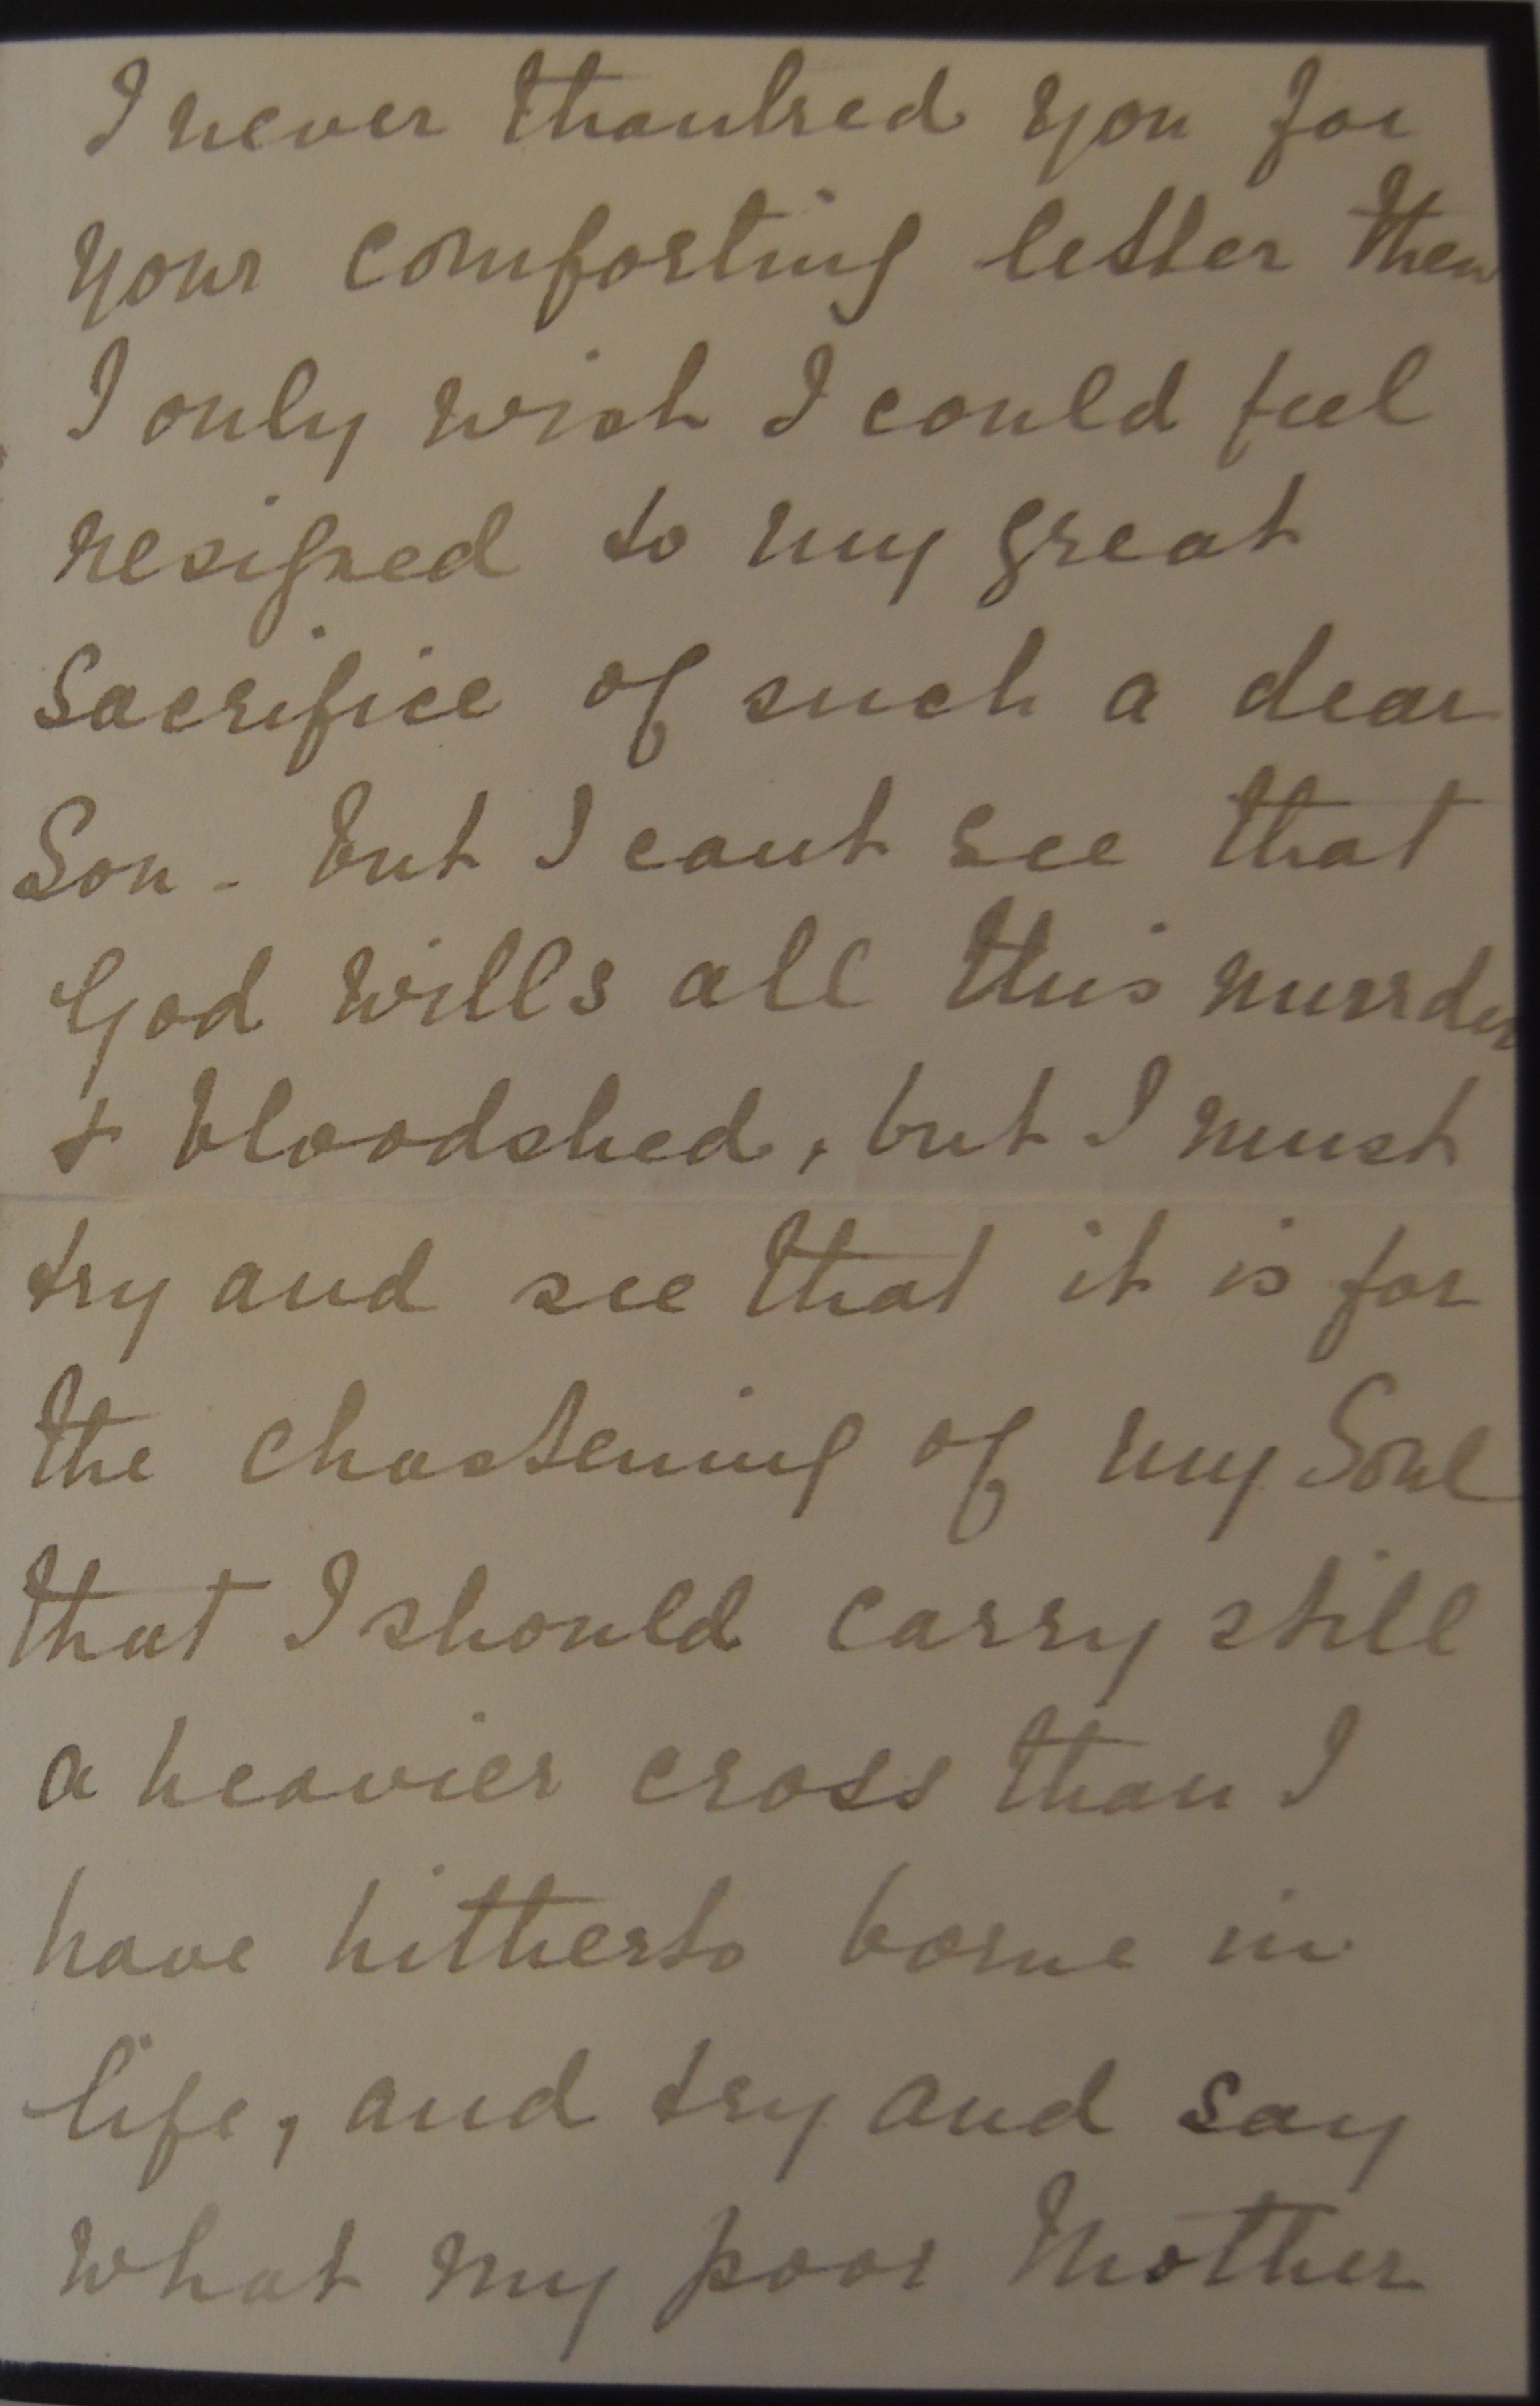 I never thanked you for
your comforting letter then
I only wish I could feel
resigned to my great
Sacrifice of such a dear
Son - but I cant see that
God wills all this murder
& bloodshed, but I must
try and see that it is for
the chastening of my Soul
that I should carry still
a heavier cross than I
have hitherto borne in
life, and try and say
what my poor Mother